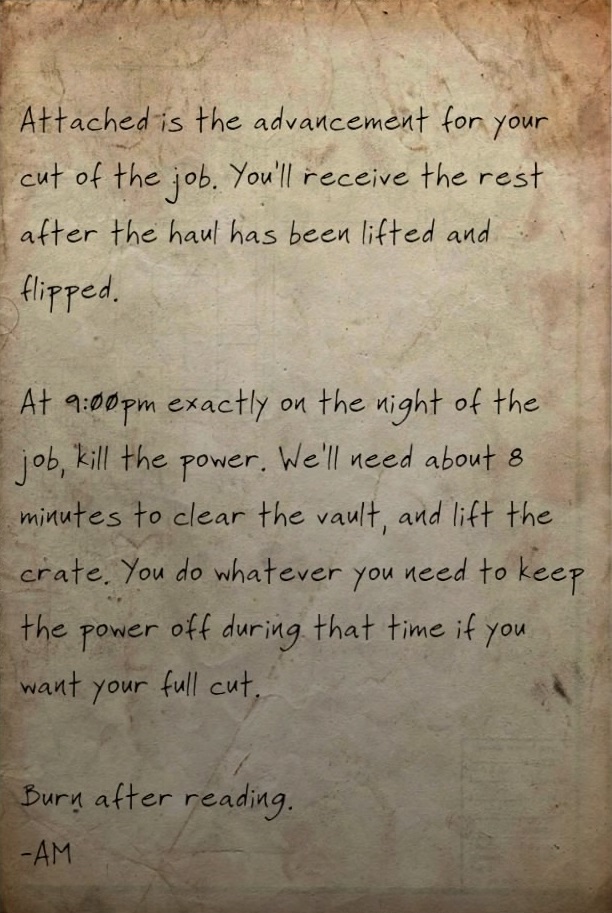 Attached is the advancement for your
cut of the job. You'll receive the rest
after the haul has been lifted and
flipped.
At 9:00pm exactly on the night of the
job, kill the power. We'll need about 8
minutes to clear the vault, and lift the
crate. You do whatever you need to keep
the power off during that time if you
want your full cut.
Burn after reading.
-AM